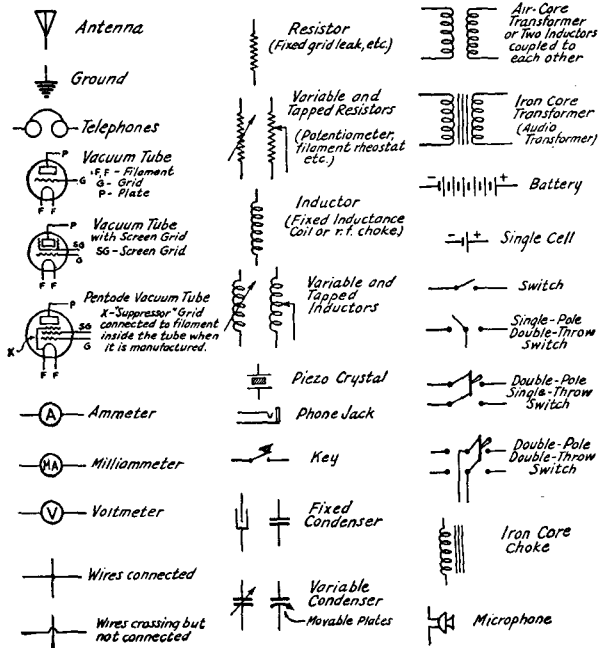 Antenna
Ground
Telephones
P
Vacuum Tube
F,F - Filament
G - Grid
P - Plate
G
F F
Vacuum Tube
with Screen Grid
SG - Screen Grid
P
SG
G
F F
Pentode Vacuum Tube
X-"Suppressor" Grid
connected to filament
inside the tube when
it is manufactured.
P
SG
G
X
F F
A
Ammeter
MA
Milliammeter
V
Voltmeter
Wires connected
Wires crossing but
not connected
Resistor
(Fixed grid leak, etc.)
Variable and
Tapped Resistors
(Potentiometer,
filament rheostat
etc.)
Inductor
(Fixed Inductance
Coil or r.f. choke)
Variable and
Tapped
Inductors
Piezo Crystal
Phone Jack
Key
Fixed
Condenser
Variable
Condenser
Movable Plates
Air-Core
Transformer
or Two Inductors
coupled to
each other
Iron Core
Transformer
(Audio
Transformer)
- +
Battery
- +
Single Cell
Switch
Single-Pole
Double-Throw
Switch
Double-Pole
Single-Throw
Switch
Double-Pole
Double-Throw
Switch
Iron Core
Choke
Microphone